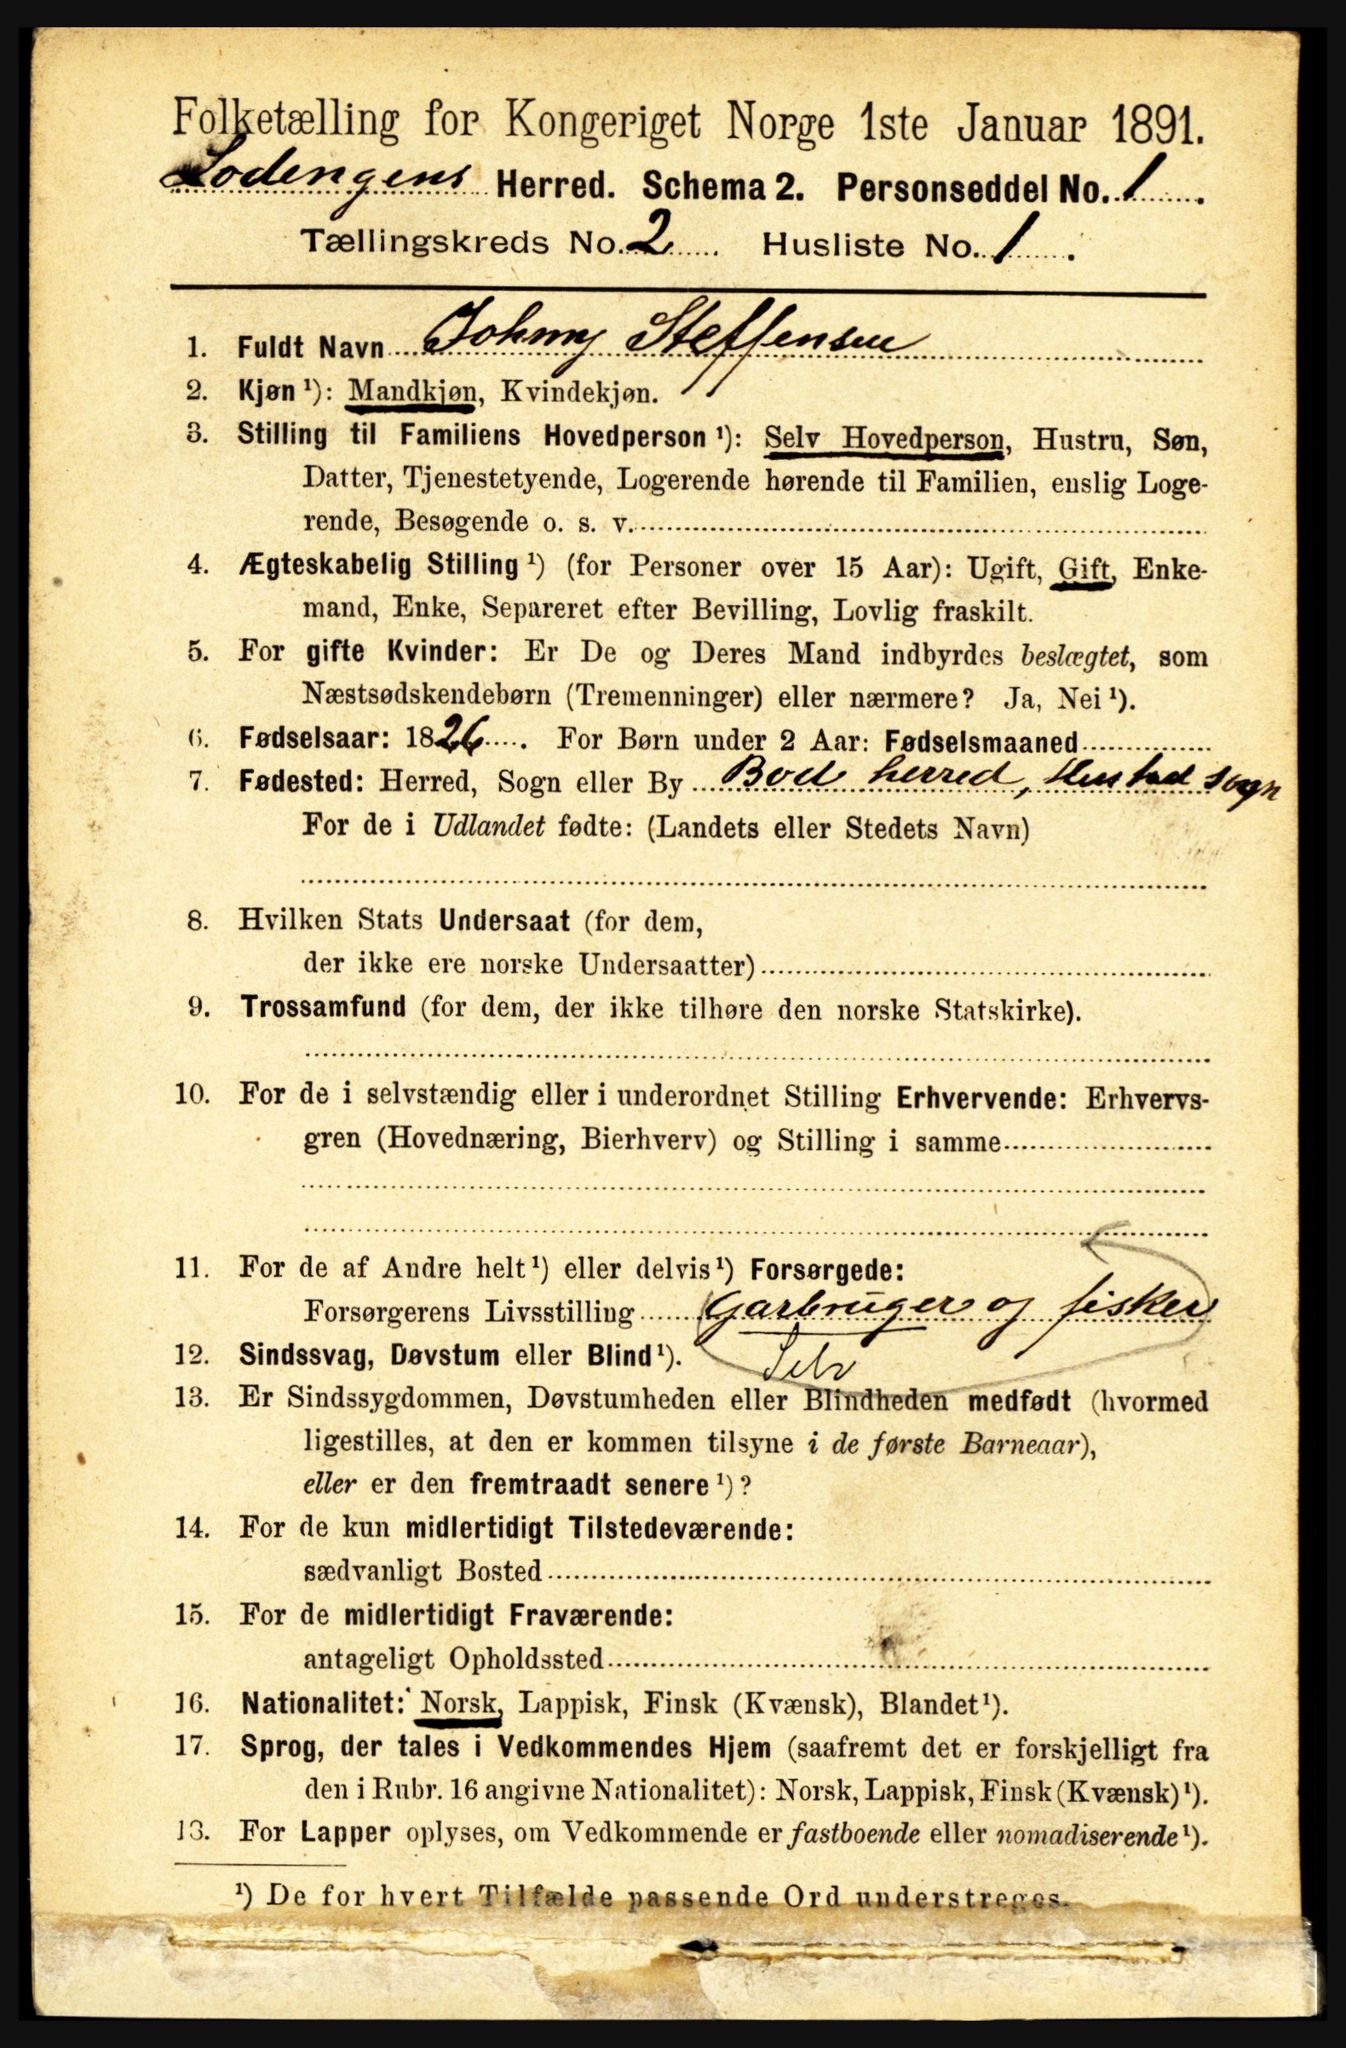 Folketælling for Kongeriget Norge 1ste Januar 1891.
Lodengens Herred. Schema 2. Personseddel No. 1
Tællingskreds No. 2 Husliste No. 1
1. Fuldt Navn Johny Steffensen
2. Kjøn¹): Mandkjøn, Kvindekjøn.
3. Stilling til Familiens Hovedperson¹): Selv Hovedperson, Hustru, Søn,
Datter, Tjenestetyende, Logerende hørende til Familien, enslig Loge-
rende, Besøgende o. s. v.
4. Ægteskabelig Stilling¹) (for Personer over 15 Aar): Ugift, Gift, Enke-
mand, Enke, Separeret efter Bevilling, Lovlig fraskilt.
5. For gifte Kvinder: Er De og Deres Mand indbyrdes beslægtet, som
Næstsødskendebørn (Tremenninger) eller nærmere? Ja, Nei¹).
6. Fødselsaar: 1826. For Børn under 2 Aar: Fødselsmaaned
7. Fødested: Herred, Sogn eller By Bod herred, Hustad sogn
For de i Udlandet fødte: (Landets eller Stedets Navn)
8. Hvilken Stats Undersaat (for dem,
der ikke ere norske Undersaatter)
9. Trossamfund (for dem, der ikke tilhøre den norske Statskirke).
10. For de i selvstændig eller i underordnet Stilling Erhvervende: Erhvervs-
gren (Hovednæring, Bierhverv) og Stilling i samme
11. For de af Andre helt¹) eller delvis¹) Forsørgede:
Forsørgerens Livsstilling Garbruger og fisker
12. Sindssvag, Døvstum eller Blind¹). Selv
13. Er Sindssygdommen, Døvstumheden eller Blindheden medfødt (hvormed
ligestilles, at den er kommen tilsyne i de første Barneaar),
eller er den fremtraadt senere¹)?
14. For de kun midlertidigt Tilstedeværende:
sædvanligt Bosted
15. For de midlertidigt Fraværende:
antageligt Opholdssted
16. Nationalitet: Norsk, Lappisk, Finsk (Kvænsk), Blandet¹).
17. Sprog, der tales i Vedkommendes Hjem (saafremt det er forskjelligt fra
den i Rubr. 16 angivne Nationalitet): Norsk, Lappisk, Finsk (Kvænsk)¹).
18. For Lapper oplyses, om Vedkommende er fastboende eller nomadiserende¹).
¹) De for hvert Tilfælde passende Ord understreges.